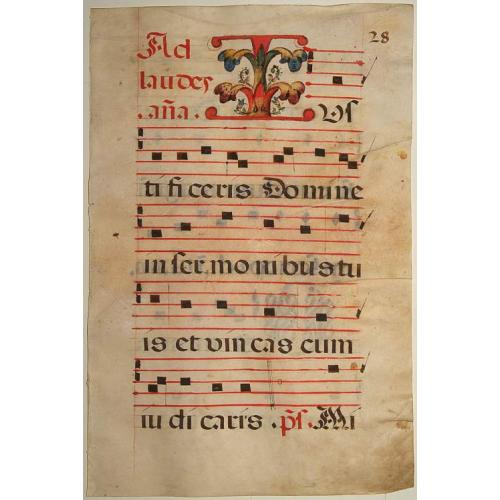 Ad 28
laudes
.aña. I us
ti fi ceris Domine
in ser mo nibus tu
is et vin cas cum
iu di caris . ps. Mi